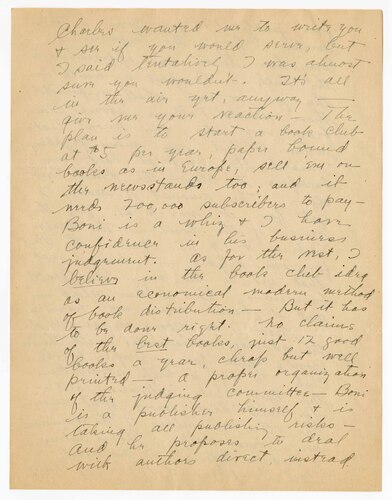 Charles wanted me to write you
& see if you would serve, but
I said tentatively I was almost
sure you wouldnt. It's all
in the air yet, anyway —
give me your reaction — The
plan is to start a book club
at $5 per year, paper bound
books as in Europe, sell 'em on
the newsstands too, and it
needs 200,000 subscribers to pay —
Boni is a whiz & I have
confidence in his business
judgement. As for the rest I
believe in the books club idea
as an economical modern method
of book distribution — But it has
to be done right. No claims
of the best books, just 12 good
books a year, cheap but well
printed — a proper organization
of the judging committee — Boni
is a publisher himself & is
taking all publishing risks —
and he proposes to deal
with authors direct, instead